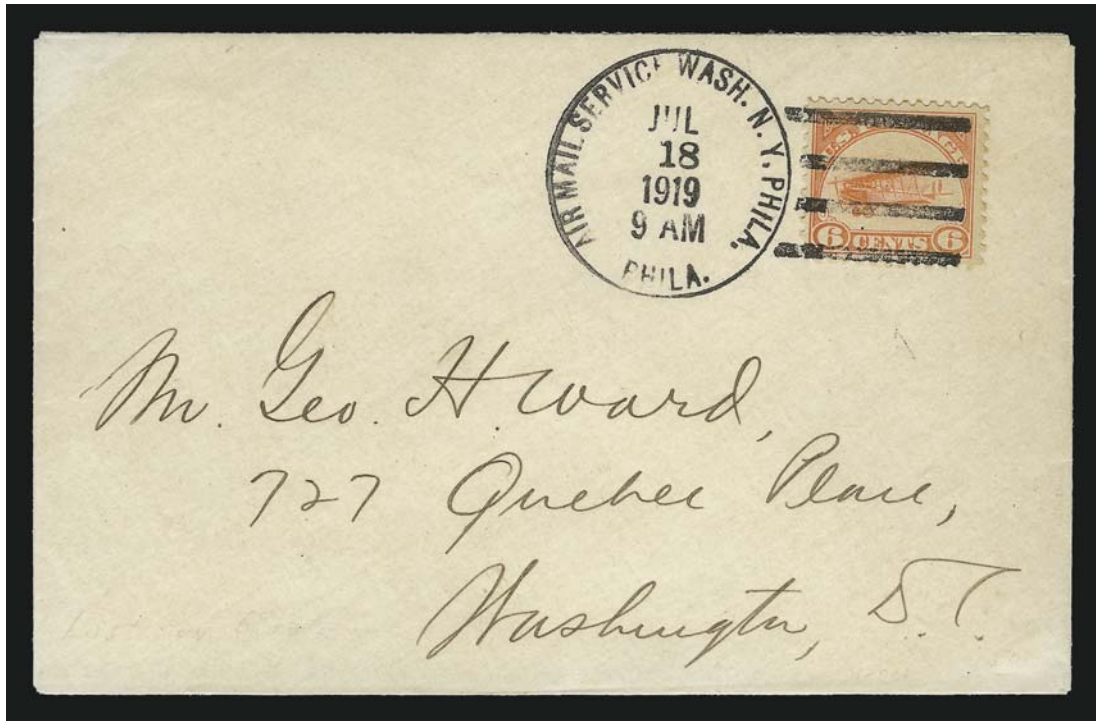 AIR MAIL SERVICE WASH. N. Y. PHILA.
JUL
18
1919
9 AM
PHILA.
U.S. POSTAGE
6 CENTS 6
Mr. Geo. H. Ward,
727 Quebec Place,
Washington, D.C.